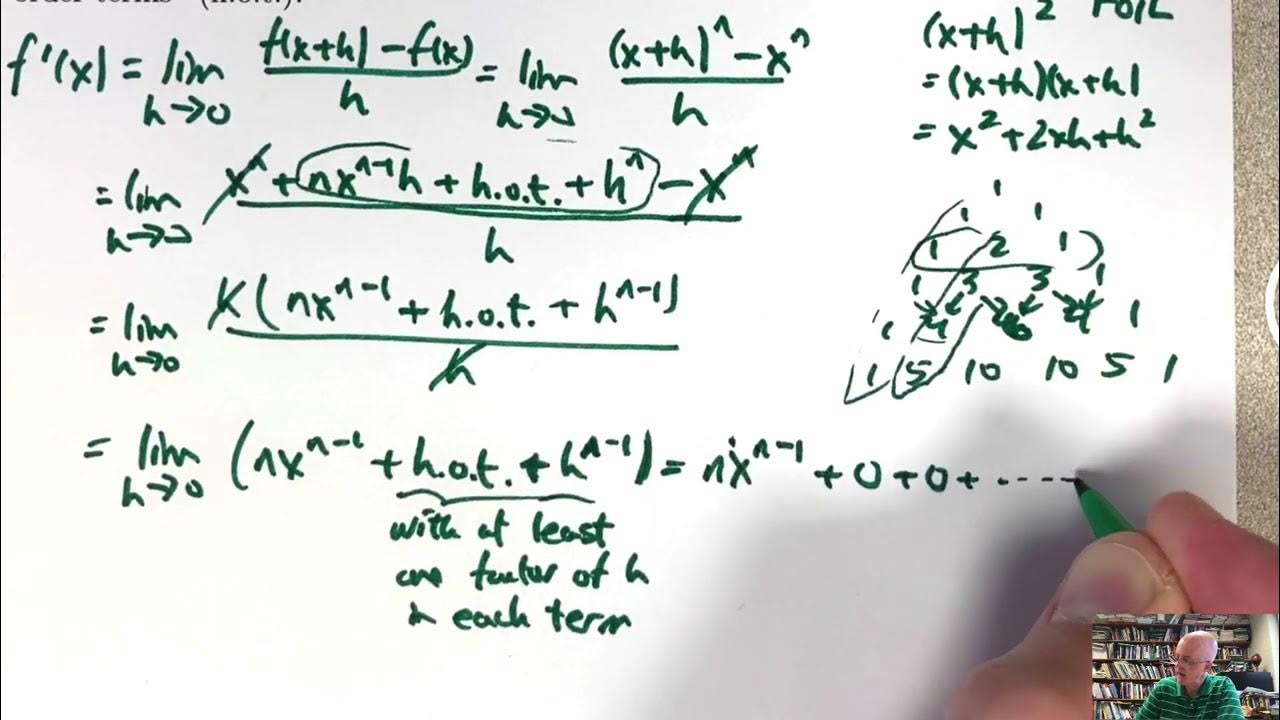 order terms" (h.o.t.).
f'(x) = lim h→0 f(x+h) - f(x) / h = lim h→0 (x+h)^n - x^n / h
= lim h→0 x^n + nx^(n-1)h + h.o.t. + h^n - x^n / h
= lim h→0 h(nx^(n-1) + h.o.t. + h^(n-1)) / h
= lim h→0 (nx^(n-1) + h.o.t. + h^(n-1)) = nx^(n-1) + 0 + 0 + ....
with at least
one factor of h
in each term
(x+h)^2 FOIL
= (x+h)(x+h)
= x^2 + 2xh + h^2
1
1 1
1 2 1
1 3 3 1
1 4 6 4 1
1 5 10 10 5 1